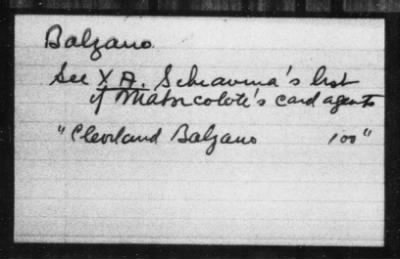 Balzano
See X A. Schiavina's list
of Matricolote's card agents
"Cleveland Balzano 100"